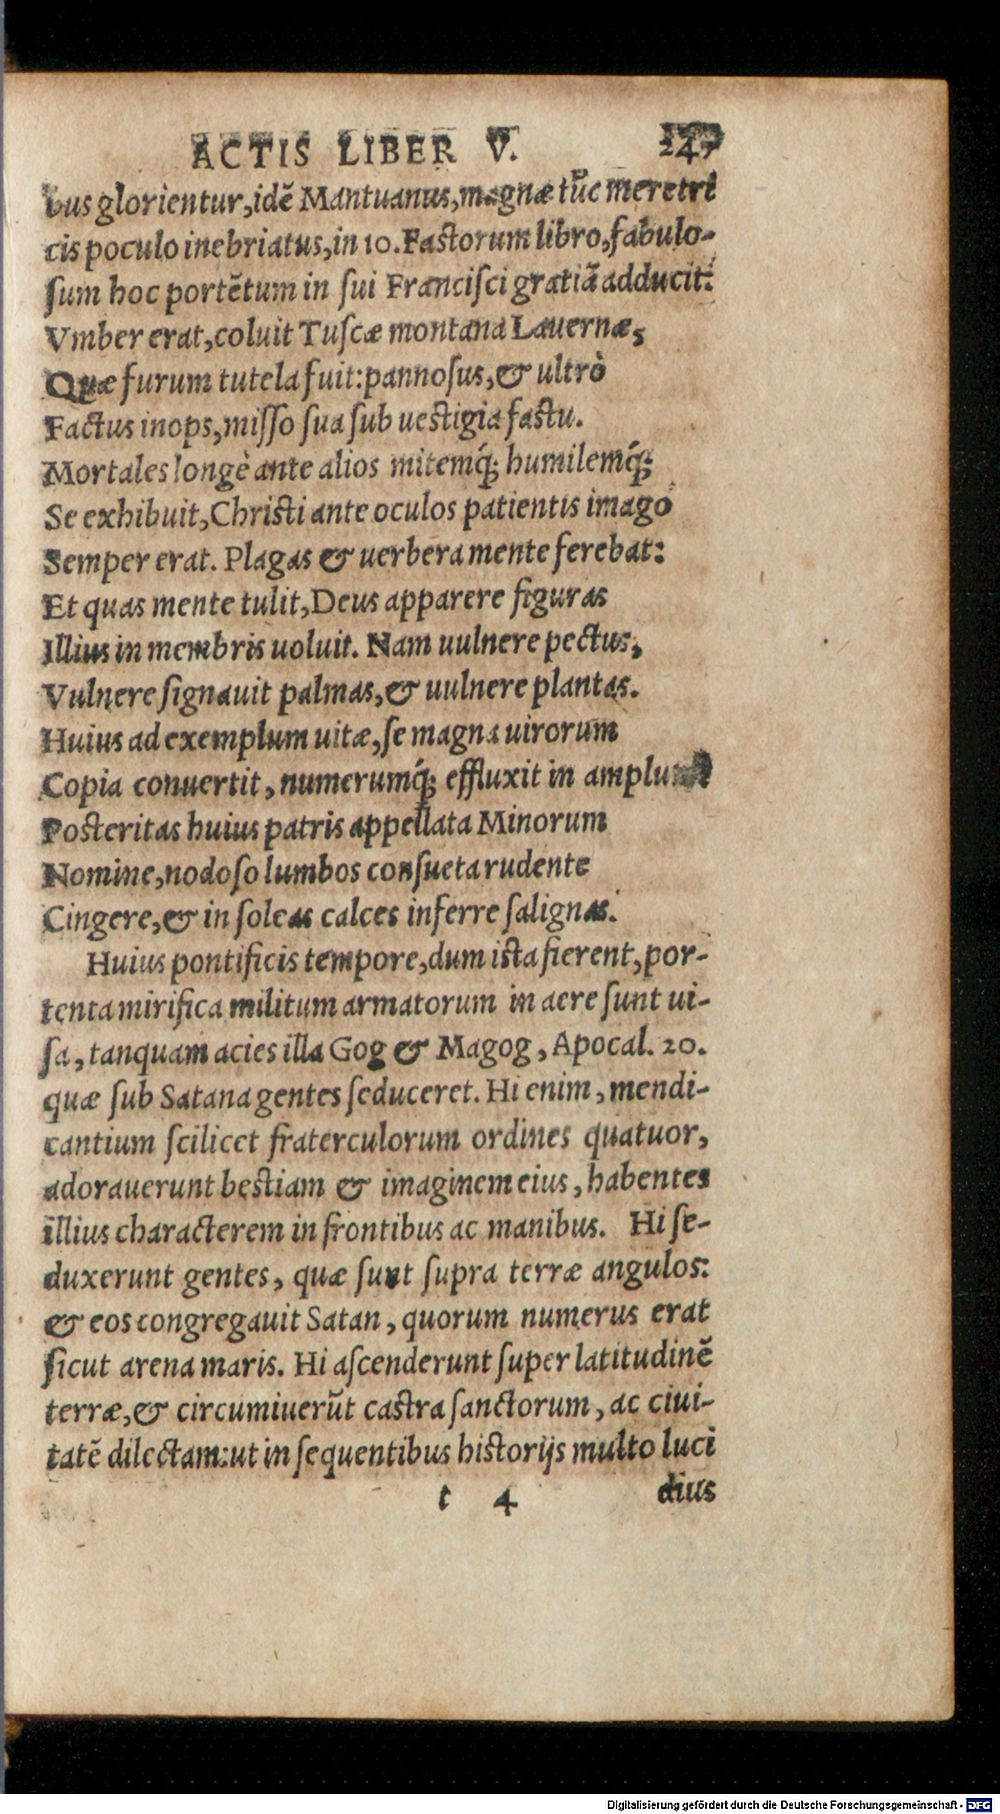 ACTIS LIBER V.
bus glorientur, idē Mantuanus, magnæ tūc meretri
cis poculo inebriatus, in 10. Fastorum libro, fabulo-
sum hoc portētum in sui Francisci gratiā adducit:
Vmber erat, coluit Tuscæ montana Lauernæ,
Quæ furum tutela fuit: pannosus, & ultrò
Factus inops, misso sua sub uestigia fastu.
Mortales longè ante alios mitemq́; humilemq́;
Se exhibuit, Christi ante oculos patientis imago
Semper erat. Plagas & uerbera mente ferebat:
Et quas mente tulit, Deus apparere figuras
Illius in membris uoluit. Nam uulnere pectus,
Vulnere signauit palmas, & uulnere plantas.
Huius ad exemplum uitæ, se magna uirorum
Copia conuertit, numerumq́; effluxit in amplum
Posteritas huius patris appellata Minorum
Nomine, nodoso lumbos consueta rudente
Cingere, & in soleas calces inferre salignas.
Huius pontificis tempore, dum ista fierent, por-
tenta mirifica militum armatorum in aere sunt ui-
sa, tanquam acies illa Gog & Magog, Apocal. 20.
quæ sub Satana gentes seduceret. Hi enim, mendi-
cantium scilicet fraterculorum ordines quatuor,
adorauerunt bestiam & imaginem eius, habentes
illius characterem in frontibus ac manibus. Hi se-
duxerunt gentes, quæ sunt supra terræ angulos:
& eos congregauit Satan, quorum numerus erat
sicut arena maris. Hi ascenderunt super latitudinē
terræ, & circumiuerūt castra sanctorum, ac ciui-
tatē dilectam: ut in sequentibus historijs multo luci
t 4 dius
Digitalisierung gefördert durch die Deutsche Forschungsgemeinschaft - DFG